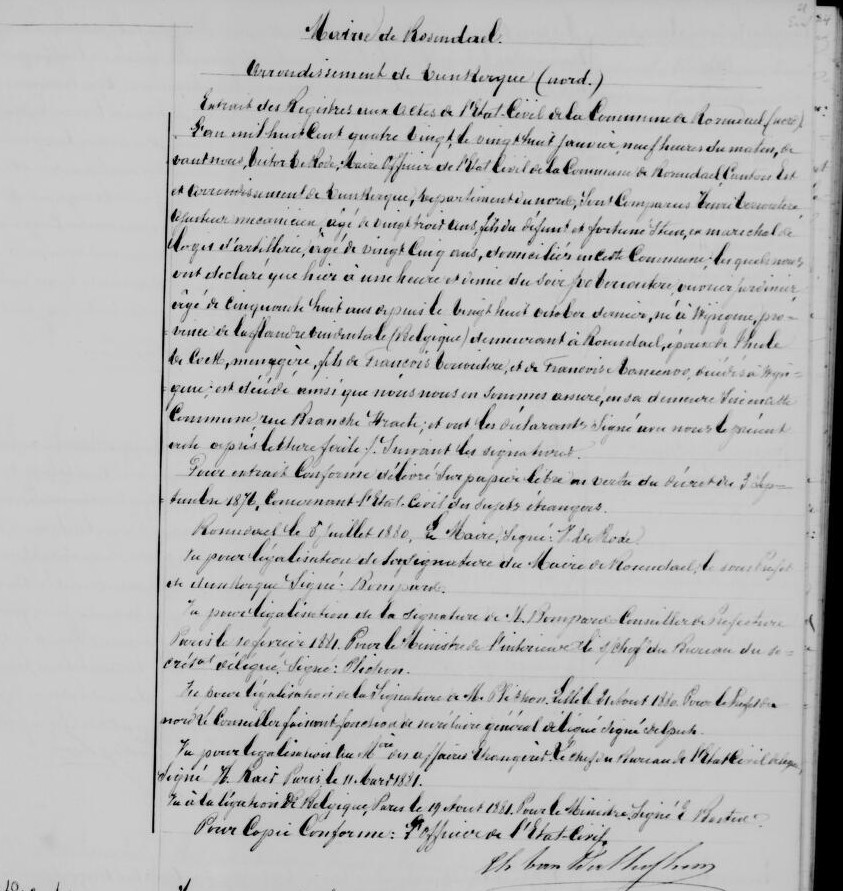 Mairie de Rosendael.
Arrondissement de Dunkerque (nord.)
Extrait des Registres aux actes de l'Etat-Civil de la Commune de Rosendael (nord)
L'an mil huit cent quatre vingt, le vingt huit janvier, neuf heures du matin, de
vant nous, Victor De Rode, Maire officier de l'Etat Civil de la Commune de Rosendael Canton Est
et arrondissement de Dunkerque, département du nord, sont comparus Henri
ajusteur mecanicien, âgé de vingt trois ans, fils du défunt et fortuné marechal de
loges d'artillerie, âgé de vingt cinq ans, domiciliés en cette Commune, lesquels nous
ont déclaré que hier à une heure et demie du soir ouvrier jardinier,
âgé de cinquante huit ans depuis le vingt huit octobre dernier, né à Wyngene, pro-
vince de la flandre occidentale (Belgique) demeurant à Rosendael, époux de
De Cock, menagère, fils de François et de Francoise décédés à Wyn-
gene, est décédé ainsi que nous nous en sommes assuré, en sa demeure sise en cette
Commune, rue Branche et ont les déclarants signé avec nous le présent
acte après lecture faite /. Suivent les signatures.
Pour extrait Conforme délivré sur papier libre en vertu du décret du 3 Sep-
tembre 1876, Concernant l'Etat-Civil des sujets étrangers.
Rosendael le 5 juillet 1880, Le Maire, Signé: V. de Rode
Vu pour légalisation de la signature du Maire de Rosendael, le sous Préfet
de dunkerque Signé: Bompard.
Vu pour légalisation de la signature de M. Bompard Conseiller de Préfecture
Paris le 10 fevrier 1881. Pour le Ministre de l'intérieur le s/chef du Bureau du se-
crétat délégué. Signé: Plichon.
Vu pour légalisation de la Signature de M. Plichon. Lille le 21 Aout 1880. Pour le Préfet du
nord le Conseiller faisant fonction de secrétaire général délégué Signé
Vu pour légalisation au Mre des affaires étrangères. Le chef du Bureau de l'Etat Civil délégué,
Signé Paris le 11 Mars 1881.
Vu à la légation de Belgique, Paris le 19 Aout 1881. Pour le Ministre, Signé
Pour Copie Conforme: L'officier de l'Etat-Civil,